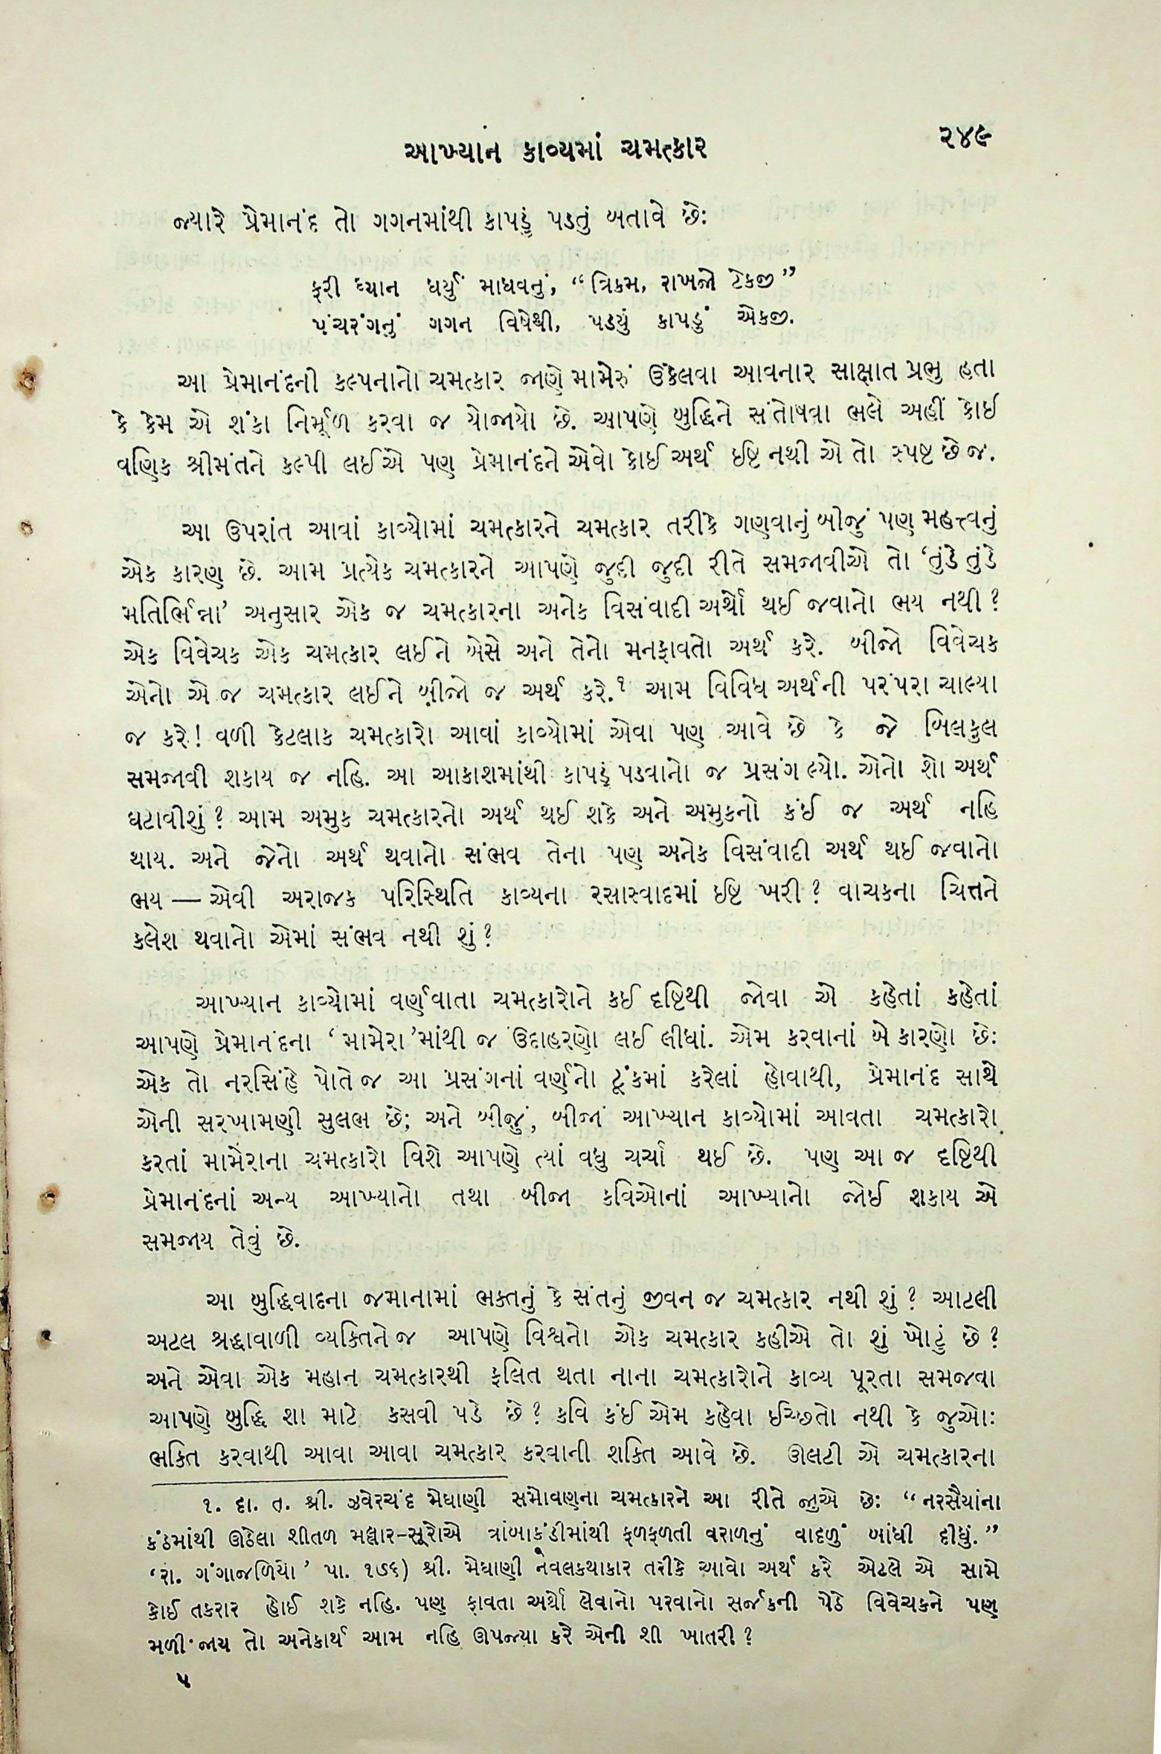 આખ્યાન કાવ્યમાં ચમત્કાર
૨૪૯
જ્યારે પ્રેમાનંદ તો ગગનમાંથી કાપડું પડતું બતાવે છે:
ફરી ધ્યાન ધર્યું માધવનું, “ત્રિકમ, રાખજો ટેકજી”
પંચરંગનું ગગન વિષેથી, પડ્યું કાપડું એકજી.
આ પ્રેમાનંદની કલ્પનાનો ચમત્કાર જાણે મામેરું ઉકેલવા આવનાર સાક્ષાત પ્રભુ હતા
કે કેમ એ શંકા નિર્મૂળ કરવા જ યોજાયો છે. આપણે બુદ્ધિને સંતોષવા ભલે અહીં કોઈ
વણિક શ્રીમંતને કલ્પી લઈએ પણ પ્રેમાનંદને એવો કોઈ અર્થ ઈષ્ટ નથી એ તો સ્પષ્ટ છે જ.
આ ઉપરાંત આવાં કાવ્યોમાં ચમત્કારને ચમત્કાર તરીકે ગણવાનું બીજું પણ મહત્ત્વનું
એક કારણ છે. આમ પ્રત્યેક ચમત્કારને આપણે જુદી જુદી રીતે સમજાવીએ તો ‘તુંડે તુંડે
મતિર્ભિન્ના’ અનુસાર એક જ ચમત્કારના અનેક વિસંવાદી અર્થો થઈ જવાનો ભય નથી?
એક વિવેચક એક ચમત્કાર લઈને બેસે અને તેનો મનફાવતો અર્થ કરે. બીજો વિવેચક
એનો એ જ ચમત્કાર લઈને બીજો જ અર્થ કરે.૧ આમ વિવિધ અર્થની પરંપરા ચાલ્યા
જ કરે! વળી કેટલાક ચમત્કારો આવાં કાવ્યોમાં એવા પણ આવે છે કે જે બિલકુલ
સમજાવી શકાય જ નહિ. આ આકાશમાંથી કાપડું પડવાનો જ પ્રસંગ લ્યો. એનો શો અર્થ
ઘટાવીશું? આમ અમુક ચમત્કારનો અર્થ થઈ શકે અને અમુકનો કંઈ જ અર્થ નહિ
થાય. અને જેનો અર્થ થવાનો સંભવ તેના પણ અનેક વિસંવાદી અર્થ થઈ જવાનો
ભય — એવી અરાજક પરિસ્થિતિ કાવ્યના રસાસ્વાદમાં ઈષ્ટ ખરી? વાચકના ચિત્તને
કલેશ થવાનો એમાં સંભવ નથી શું?
આખ્યાન કાવ્યોમાં વર્ણવાતા ચમત્કારોને કઈ દૃષ્ટિથી જોવા એ કહેતાં કહેતાં
આપણે પ્રેમાનંદના ‘મામેરા’માંથી જ ઉદાહરણો લઈ લીધાં. એમ કરવાનાં બે કારણો છે:
એક તો નરસિંહે પોતે જ આ પ્રસંગનાં વર્ણનો ટૂંકમાં કરેલાં હોવાથી, પ્રેમાનંદ સાથે
એની સરખામણી સુલભ છે; અને બીજું, બીજાં આખ્યાન કાવ્યોમાં આવતા ચમત્કારો
કરતાં મામેરાના ચમત્કારો વિશે આપણે ત્યાં વધુ ચર્ચા થઈ છે. પણ આ જ દૃષ્ટિથી
પ્રેમાનંદનાં અન્ય આખ્યાનો તથા બીજા કવિઓનાં આખ્યાનો જોઈ શકાય એ
સમજાય તેવું છે.
આ બુદ્ધિવાદના જમાનામાં ભક્તનું કે સંતનું જીવન જ ચમત્કાર નથી શું? આટલી
અટલ શ્રદ્ધાવાળી વ્યક્તિને જ આપણે વિશ્વનો એક ચમત્કાર કહીએ તો શું ખોટું છે?
અને એવા એક મહાન ચમત્કારથી ફલિત થતા નાના ચમત્કારોને કાવ્ય પૂરતા સમજવા
આપણે બુદ્ધિ શા માટે કસવી પડે છે? કવિ કંઈ એમ કહેવા ઈચ્છતો નથી કે જુઓ:
ભક્તિ કરવાથી આવા આવા ચમત્કાર કરવાની શક્તિ આવે છે. ઊલટી એ ચમત્કારના
૧. દા. ત. શ્રી. ઝવેરચંદ મેઘાણી સમોવણના ચમત્કારને આ રીતે જુએ છે: “નરસૈયાંના
કંઠમાંથી ઊઠેલા શીતળ મલ્હાર-સૂરોએ ત્રાંબાકૂંડીમાંથી ફળફળતી વરાળનું વાદળું બાંધી દીધું.”
‘રા. ગંગાજળિયો’ પા. ૧૭૬) શ્રી. મેઘાણી નવલકથાકાર તરીકે આવો અર્થ કરે એટલે એ સામે
કોઈ તકરાર હોઈ શકે નહિ. પણ ફાવતા અર્થો લેવાનો પરવાનો સર્જકની પેઠે વિવેચકને પણ
મળી જાય તો અનેકાર્થ આમ નહિ ઊપજ્યા કરે એની શી ખાતરી?
૫